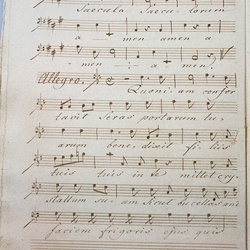 Saecula Saecu- lorum
a - men amen a
men - i - a - men.
Allegro. Quoni- am confor
tavit seras portarum tu,
arum bene, dixit fi- liis
tuis tuis in te mittet cry,
stallum su- am sicut bucellas ante
faciem frigoris ejus quis